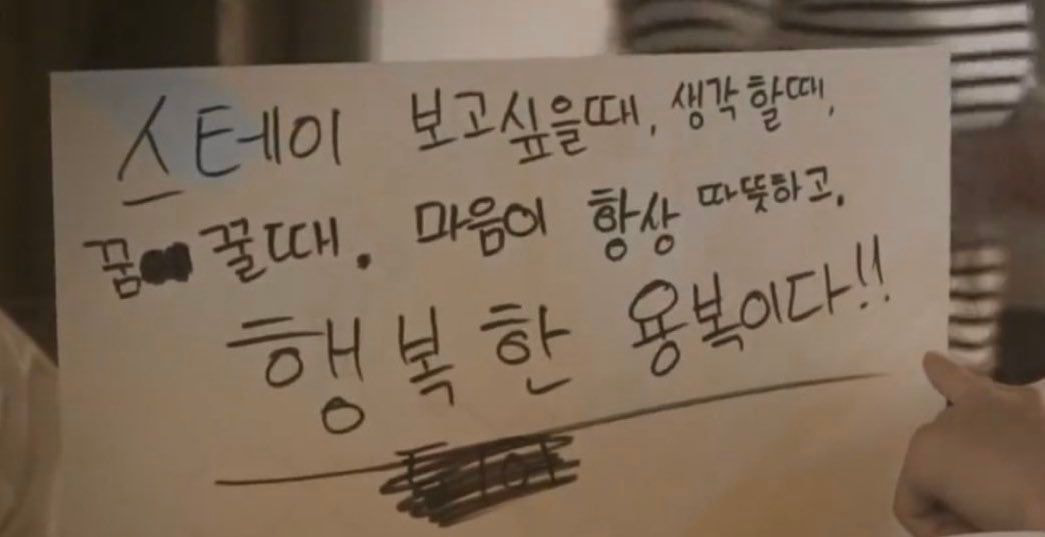 스테이 보고싶을때, 생각할때,
꿈 꿀때. 마음이 항상 따뜻하고.
행복한 용복이다!!